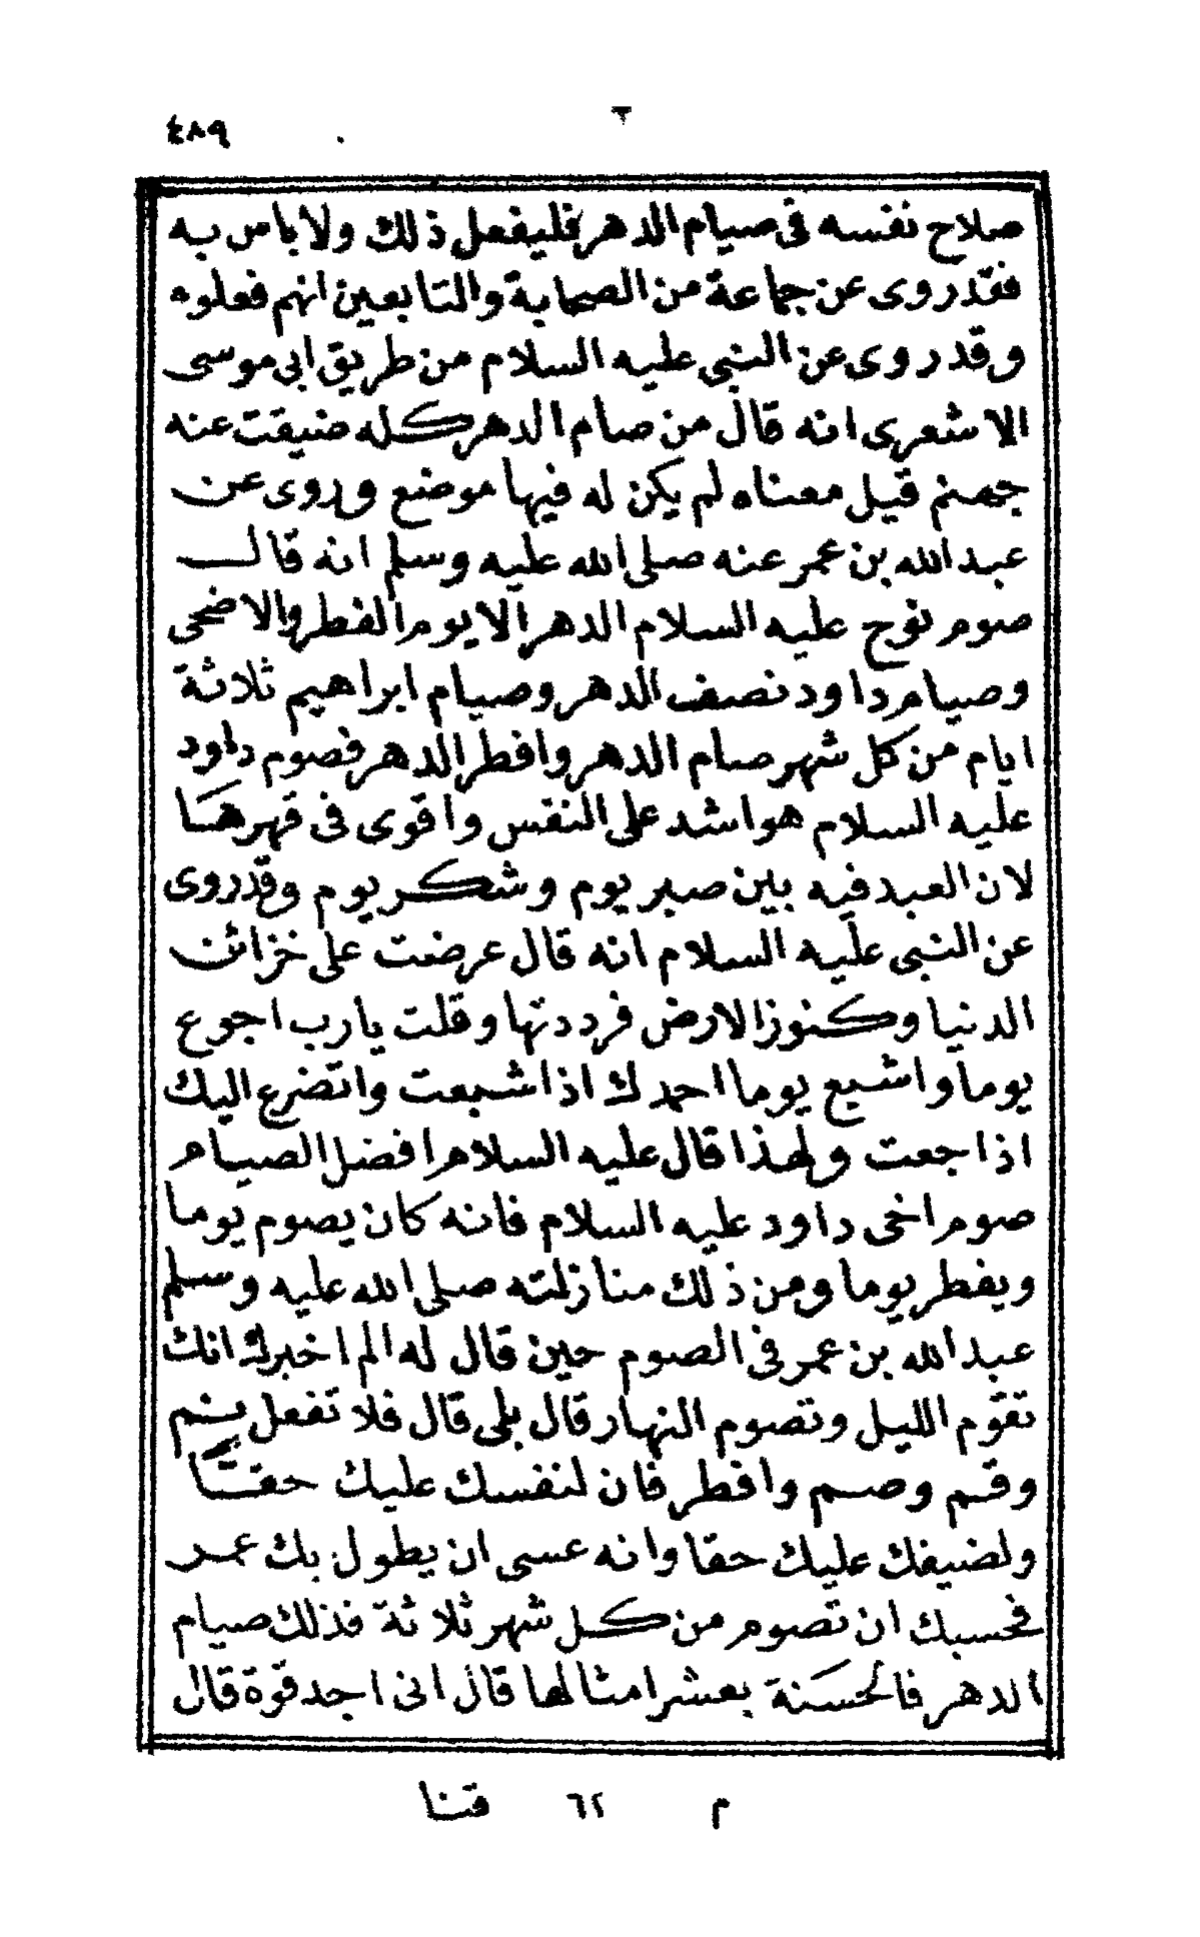 ٤٨٩
صلاح نفسه فى صيام الدهر فليفعل ذلك ولا باس به
فقد روى عن جماعة من الصحابة والتابعين انهم فعلوه
وقد روى عن النبى عليه السلام من طريق ابى موسى
الاشعرى انه قال من صام الدهر كله ضيقت عنه
جهنم قيل معناه لم يكن له فيها موضع وروى عن
عبد الله بن عمر عنه صلى الله عليه وسلم انه قال
صوم نوح عليه السلام الدهر الا يوم الفطر والاضحى
وصيام داود نصف الدهر وصيام ابراهيم ثلاثة
ايام من كل شهر صام الدهر وافطر الدهر فصوم داود
عليه السلام هو اشد على النفس واقوى فى قهرها
لان العبد فيه بين صبر يوم وشكر يوم وقد روى
عن النبى عليه السلام انه قال عرضت على خزائن
الدنيا وكنوز الارض فرددتها وقلت يارب اجوع
يوما واشبع يوما احمدك اذا شبعت واتضرع اليك
اذا جعت ولهذا قال عليه السلام افضل الصيام
صوم اخى داود عليه السلام فانه كان يصوم يوما
ويفطر يوما ومن ذلك منازلته صلى الله عليه وسلم
عبد الله بن عمر فى الصوم حين قال له الم اخبرك انك
تقوم الليل وتصوم النهار قال بلى قال فلا تفعل بنم
وقم وصم وافطر فان لنفسك عليك حقا
ولضيفك عليك حقا وانه عسى ان يطول بك عمر
فحسبك ان تصوم من كل شهر ثلاثة فذلك صيام
الدهر فالحسنة بعشر امثالها قال انى اجد قوة قال
م ٦٢ قتنا